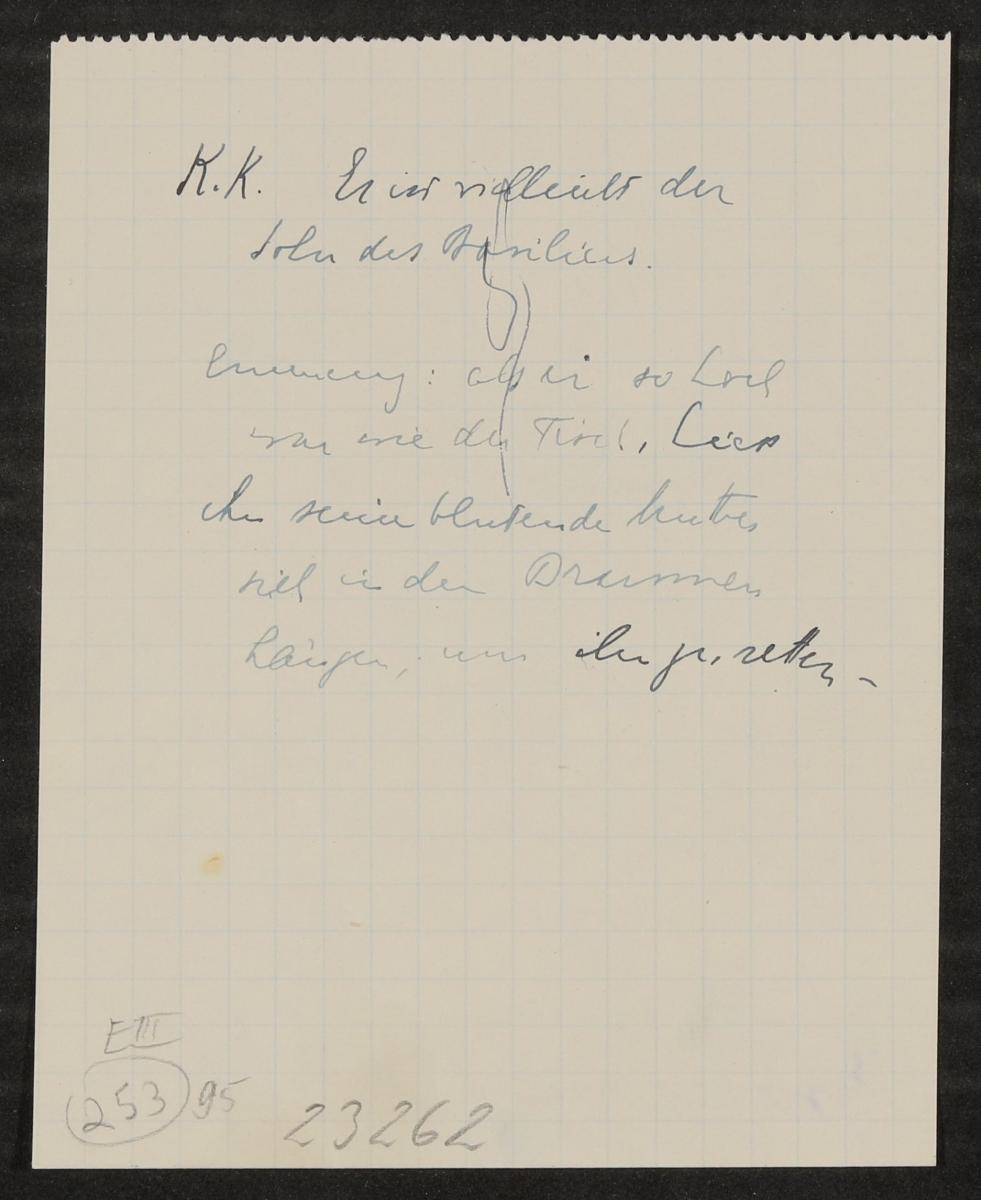 K.K. Er ist vielleicht der
Sohn des Basilius.
Erinnerung: als er so hoch
war wie der Tisch, liess
ihn seine blutende Mutter
sich in den Brunnen
hängen, um ihn zu retten –
E III
253 95
23262